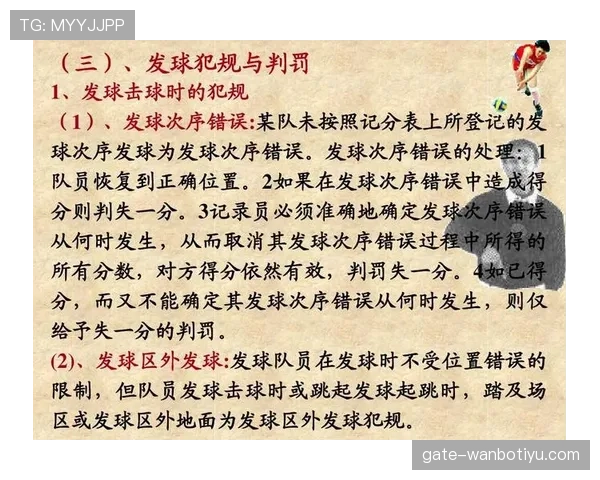 TG: MYYJJPP
（三）、发球犯规与判罚
1、发球击球时的犯规
（1）、发球次序错误:某队未按照记分表上所登记的发
球次序发球为发球次序错误。发球次序错误的处理：1
队员恢复到正确位置。2如果在发球次序错误中造成得
分则判失一分。3记录员必须准确地确定发球次序错误
从何时发生，从而取消其发球次序错误过程中所得的
所有分数，对方得分依然有效，判罚失一分。4如已得
分，而又不能确定其发球次序错误从何时发生，则仅
给予失一分的判罚。
(2)、发球区外发球:发球队员在发球时不受位置错误的
限制，但队员发球击球时或跳起发球起跳时，踏及场
区或发球区外地面为发球区外发球犯规。
gate-wanbotiyu.com